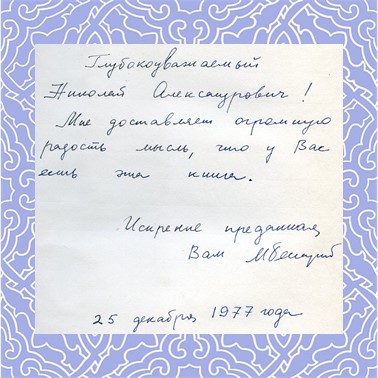 Глубокоуважаемый
Николай Александрович!
Мне доставляет огромную
радость мысль, что у Вас
есть эта книга.
Искренне преданная
Вам
25 декабря 1977 года